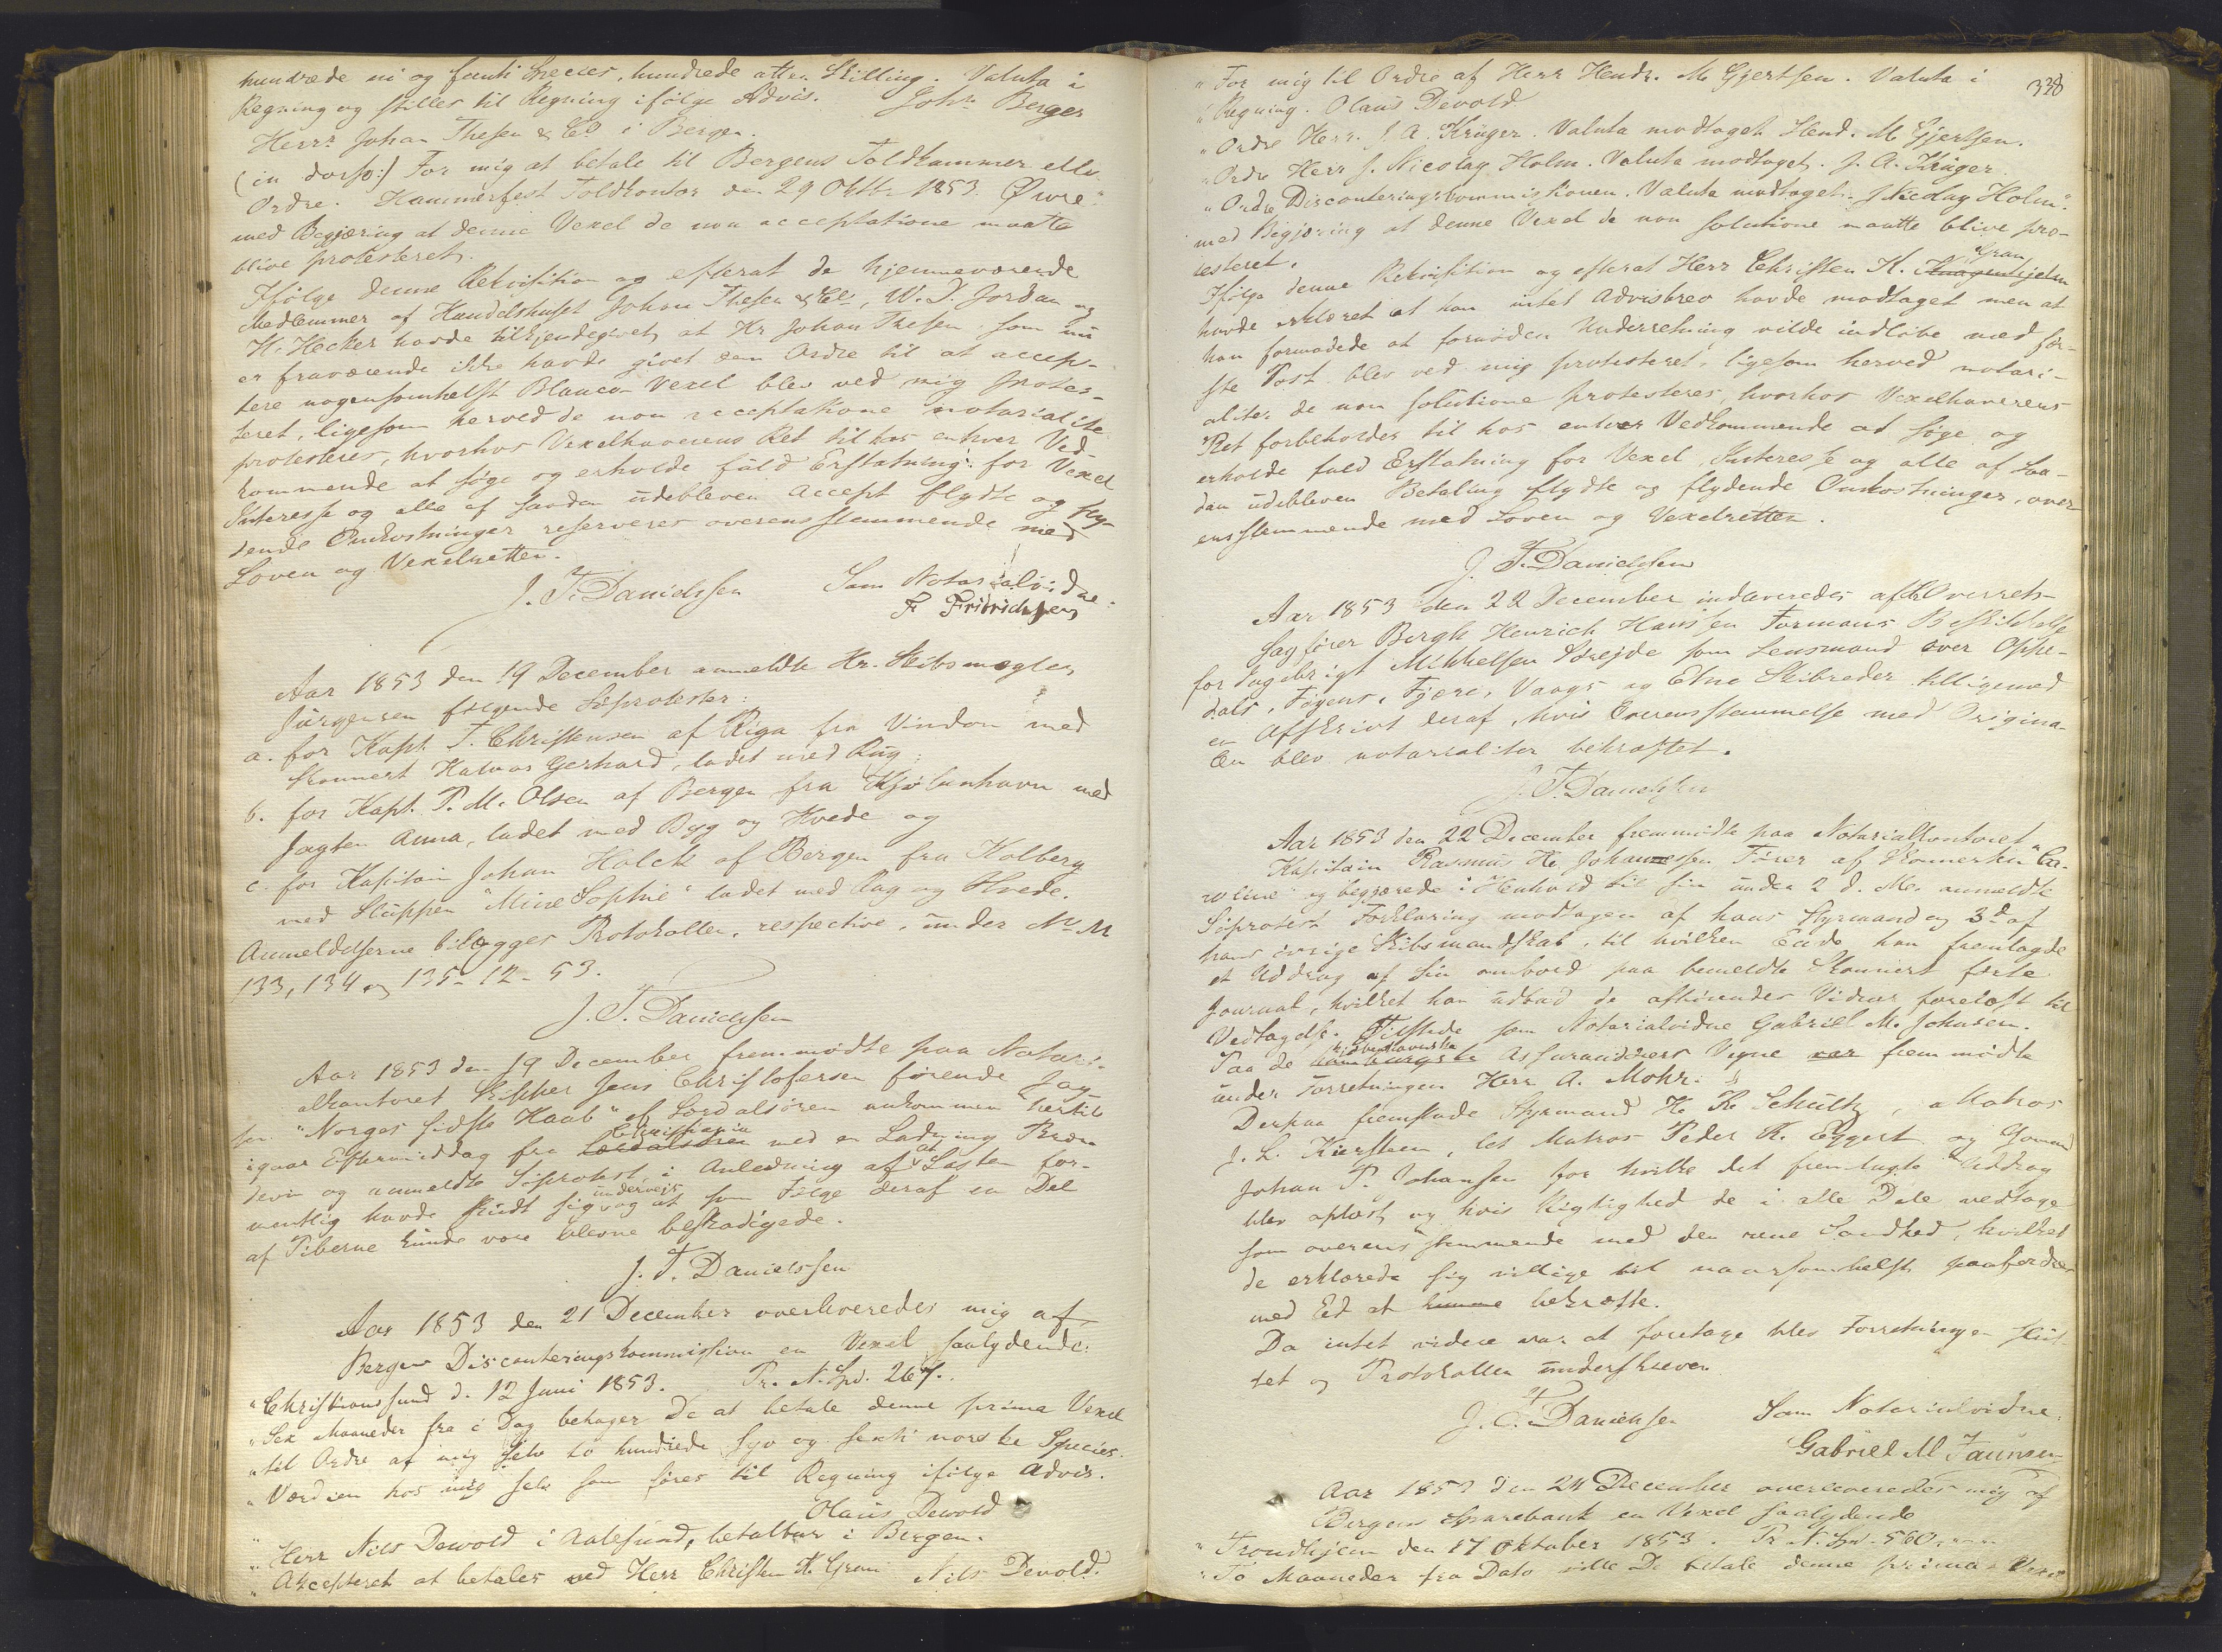 hundrede ni og femti Species, hundrede atten Skilling. Valuta i
Regning og stilles til Regning ifølge Advis. Johs Berger
Herrr Johan Thesen & Co i Bergen.
(in dorso:) For mig at betale til Bergens Toldkammer elle
Ordre. Hammerfest Toldkontor den 29 Oktbr 1853
med Begjæring at denne Vexel de non acceptatione maatte
blive protesteret.
Ifølge denne Rekvisition og efterat de hjemmeværende
Medlemmer af Handelshuset Johan Thesen & Co, W. D. Jordan og
H. Hecker havde tilkjendegivet, at Hr Johan Thesen som nu
er fraværende ikke havde givet dem Ordre til at accep-
tere nogensomhelst Blanco-Vexel blev ved mig protes-
teret, ligesom herved de non acceptatione notarialite
protesteres, hvorhos Vexelhaverens Ret til hos enhver Ved-
kommende at søge og erholde fuld Erstatning for Vexel
Interesse og alle af saadan udebleven Accept flydte og fly-
dende Omkostninger reserveres overensstemmende med
Loven og Vexelretten.
J. F. Danielssen Som Notarialvidne:
F. Fridrichsen
Aar 1853 den 19 December anmeldte Hr. Skibsmægler
Jürgensen følgende Søprotester:
a. for Kapt. T. Christensen af Riga fra Vindau med
Skonnert Halvor Gerhard, ladet med Rug;
b. for Kapt. P. M. Olsen af Bergen fra Kjøbenhavn med
Jagten Anna, ladet med Byg og Hvede og
c. for Kapitain Johan Holck af Bergen fra Kolberg
med Sluppen "Mine Sophie" ladet med Rug og Hvede.
Anmeldelserne bilægges Protokollen, respective, under No M
133, 134 og 135-12-53.
J. F. Danielssen
Aar 1853 den 19 December fremmødte paa Notari-
alkontoret Skipper Jens Christofersen førende Jag-
ten "Norges sidste Haab" af Lærdalsøren ankommen hertil
igaar Eftermiddag fra Lærdalsøren Christiania med en Ladning Brænde-
devin og anmeldte Søprotest i Anledning af at Lasten for-
mentlig havde skudt sig undervejs og at som Følge deraf en Del
af Piberne kunde være blevne beskadigede.
J. F. Danielssen
Aar 1853 den 21 December overleveredes mig af
Bergens Disconteringskommission en Vexel saalydende:
"Christianssund d. 12 Juni 1853. Pr. N. Spd. 267.
"Sex Maaneder fra i Dag behager De at betale denne prima Vexel
"til Ordre af mig selv to hundrede syv og sexti norske Species.
"Værdien hos mig selv som føres til Regning ifølge Advis.
Olaus Dewold
"Herr Nils Dewold i Aalesund, betalbar i Bergen.
"Akcepteret at betales ved Herr Christen K. Gran Nils Devold.
338
"For mig til Ordre af Herr Hendr. M. Gjertsen. Valuta i
"Regning. Olaus Devold
"Ordre Herr. J. A. Krüger. Valuta modtaget. Hend. M. Gjertsen.
"Ordre Herr J. Nicolay Holm. Valuta modtaget. J. A. Krüger.
"Ordre Disconteringskommissionen. Valuta modtaget. J Nicolay Holm."
med Begjæring at denne Vexel de non solutione maatte blive pro-
testeret.
Ifølge denne Rekvisition og efterat Herr Christen K. Gran
havde erklæret at han intet Advisbrev havde modtaget men at
han formodede at fornøden Underretning vilde indløbe med før-
ste Post blev ved mig protesteret, ligesom herved notari-
aliter de non solutione protesteres, hvorhos Vexelhaverens
Ret forbeholdes til hos enhver Vedkommende at søge og
erholde fuld Erstatning for Vexel, Interesse og alle af saa-
dan udebleven Betaling flydte og flydende Omkostninger, over-
ensstemmende med Loven og Vexelretten.
J. F. Danielssen
Aar 1853 den 22 December indleveredes af Hr Overrets-
sagfører Bergh Henrich Hanssen Formanns Beskikkelse
for Ingebrigt Mikkelsen Drejde som Lensmand over Oppe-
dals, Føyens, Fjære, Vaags og Etne Skibreder tilligemed
en Afskrivt deraf, hvis Overensstemmelse med Origina-
len blev notarialiter bekræftet.
J. F. Danielssen
Aar 1853 den 22 December fremmødte paa Notarialkontoret
Kapitain Rasmus H. Johannessen Fører af Skonnerten "Ca-
roline" og begjærede i Henhold til sin under 2 d. M. anmeldte
Søprotest Forklaring modtagen af hans Styrmand og 3de af
hans øvrige Skibsmandskab, til hvilken Ende han fremlagde
et Uddrag af sin ombord paa bemeldte Skonnert førte
Journal, hvilket han udbad de afhørendes Vidner forelæst til
Vedtagelse. Tilstede som Notarialvidne Gabriel M. Johnsen.
Paa de kjøbenhavnske Assurandørers Vegne var fremmødte
under Forretningen Herr A. Mohr.
Derpaa fremstode Styrmand H. K. Schultz, Matros
J. L. Kiersteen, let Matros Peder K. Eggert og Jomand
Johan P. Johansen for hvilke det fremlagte Uddrag
blev oplæst og hvis Rigtighed de i alle Dele vedtoge
som overensstemmende med den rene Sandhed, hvilket
de erklærede sig villige til naarsomhelst paafordres
med Ed at kunne bekræfte.
Da intet videre var at foretage blev Forretningen slut-
tet og Protokollen underskreven.
J. F. Danielssen Som Notarialvidne:
Gabriel M Jaunsen
Aar 1853 den 24 December overleveredes mig af
Bergens Sparebank en Vexel saalydende
"Trondhjem den 17 Oktober 1853. Pr N. Spd. 560.
"To Maaneder fra Dato ville De betale denne prima Vexel